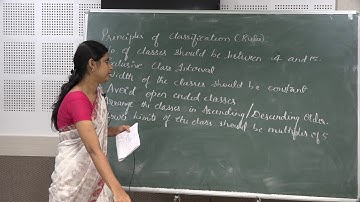 Principles of classification (Rules)
of classes should be between 4 and 15.
Class Interval
Width of the classes should be constant
Avoid open ended classes
the classes in Ascending/Descending Order.
Lower limits of the class should be multiples of 5